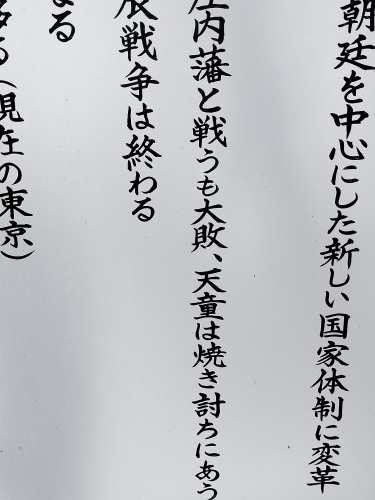 朝廷を中心にした新しい国家体制に変革
庄内藩と戦うも大敗、天童は焼き討ちにあう
辰戦争は終わる
る
る（現在の東京）